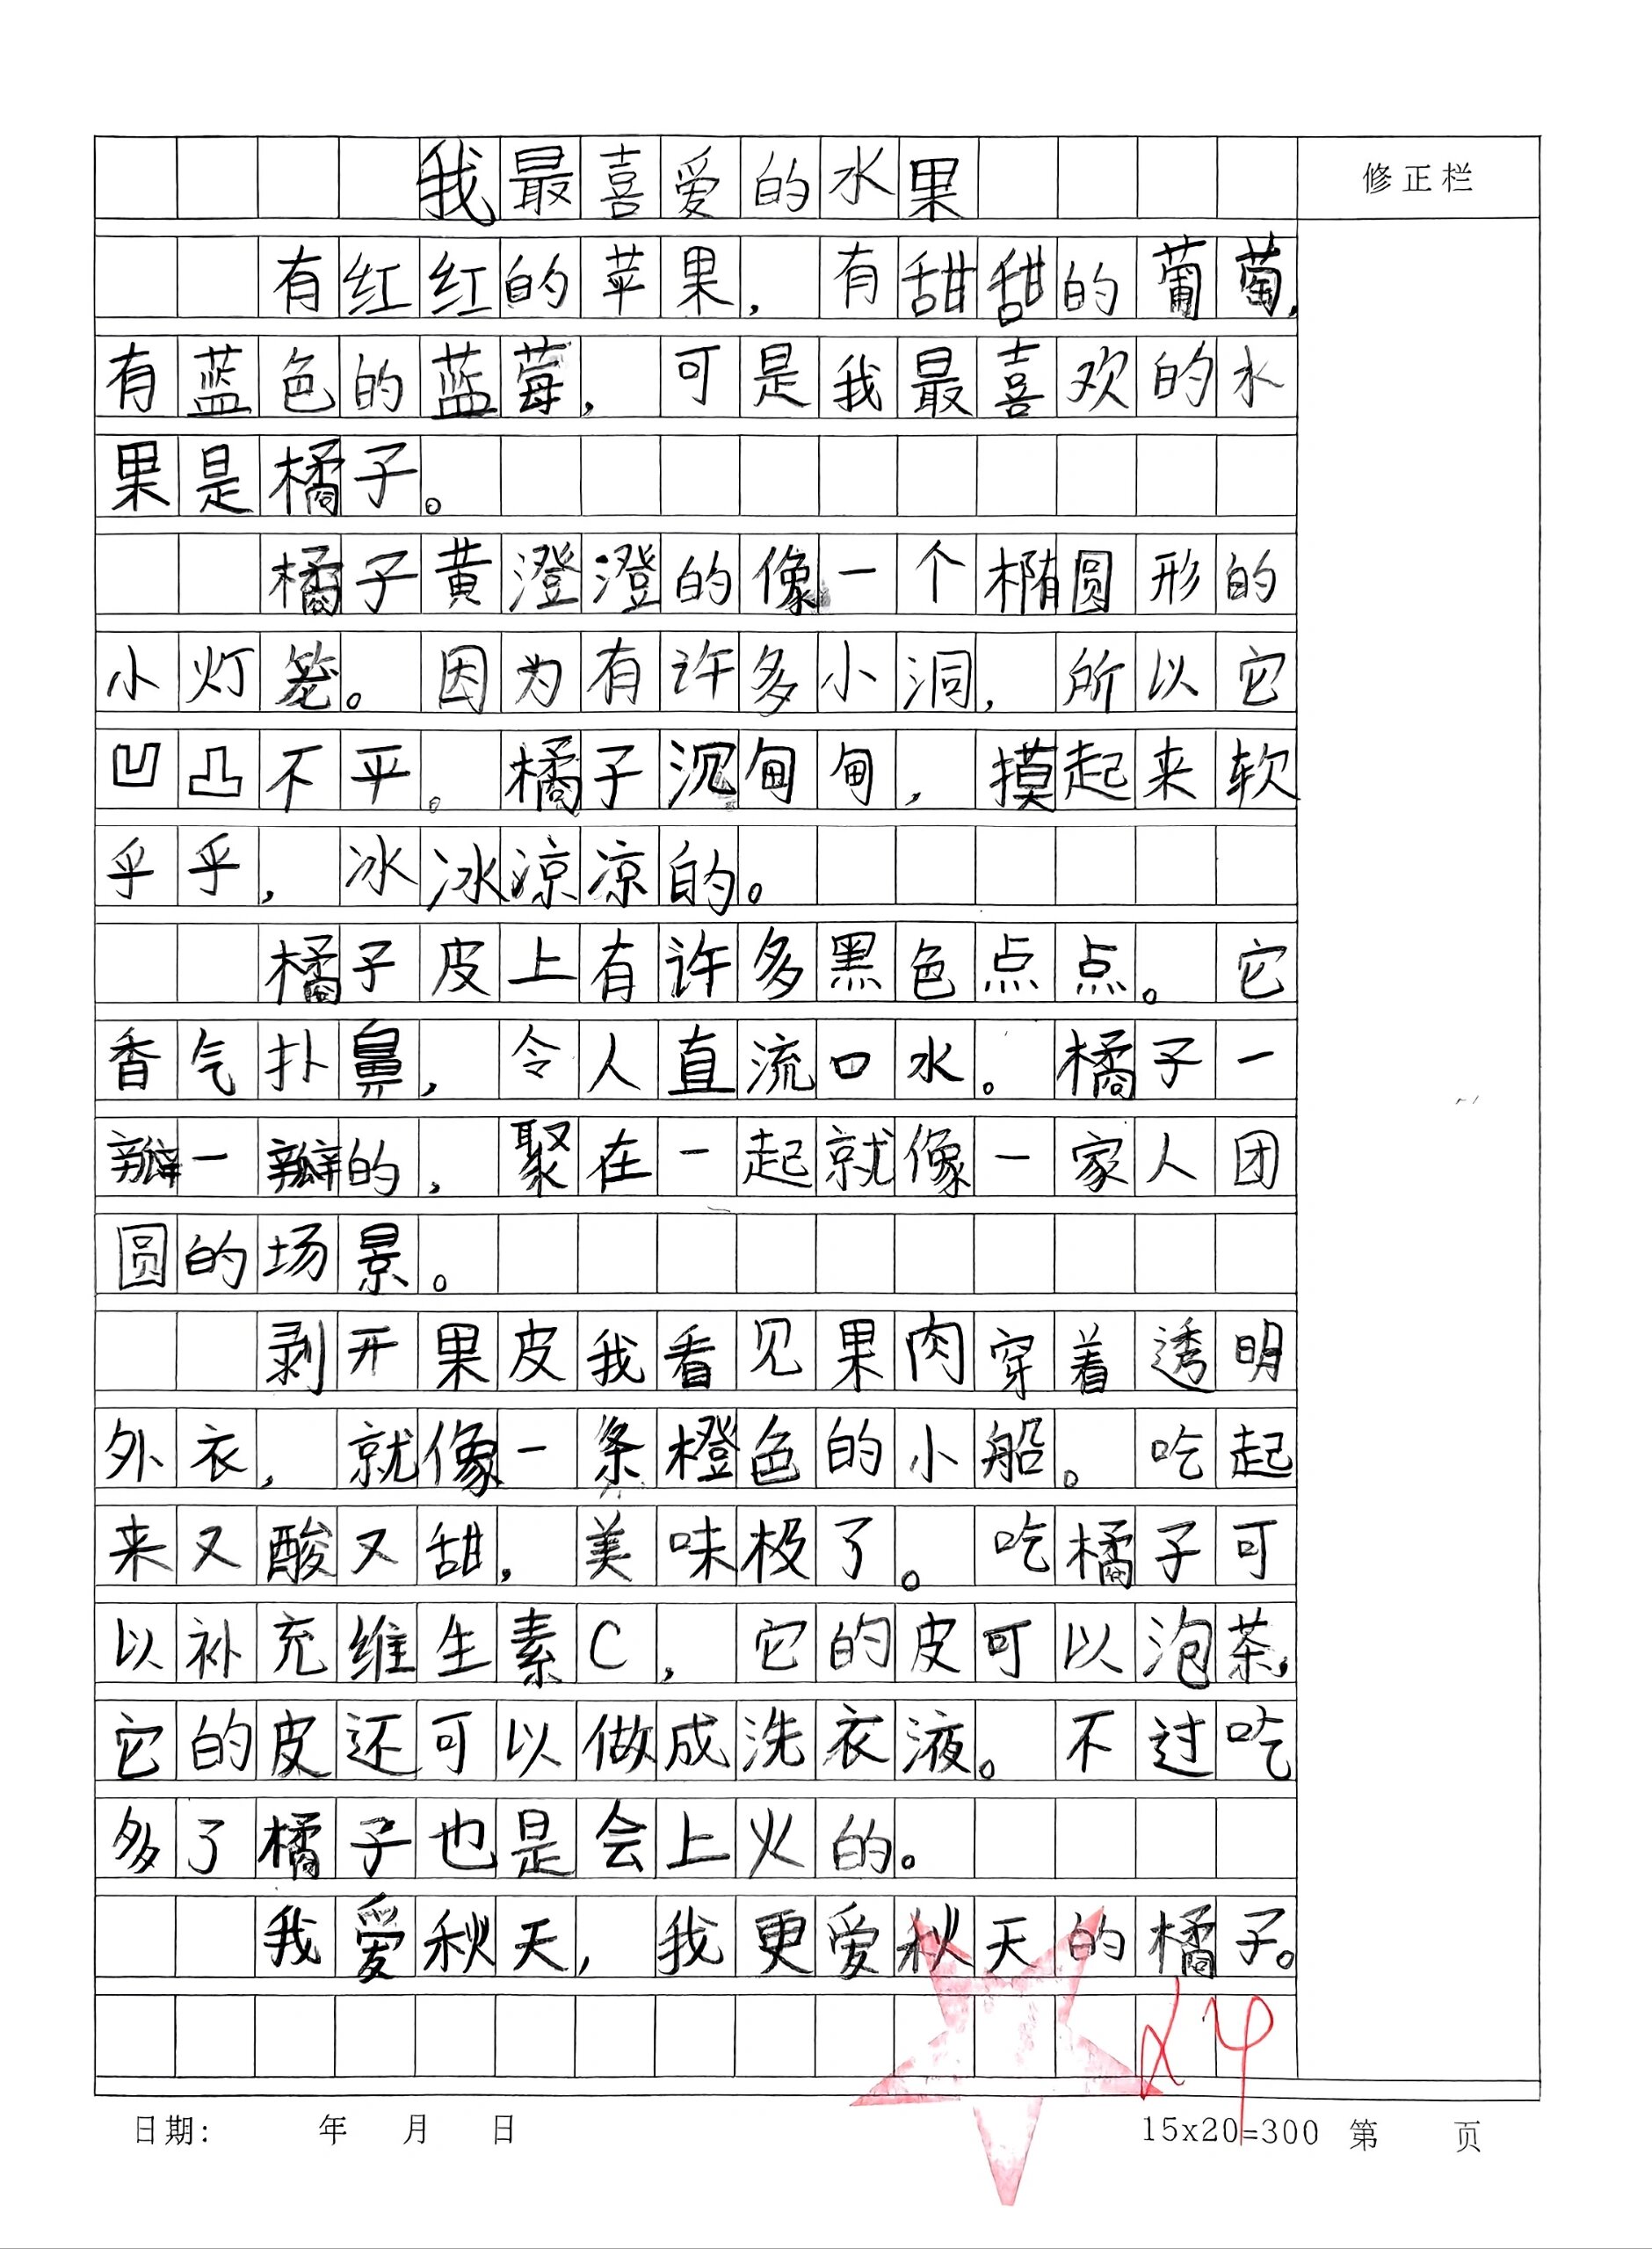 我最喜爱的水果
修正栏
有红红的苹果，有甜甜的葡萄，
有蓝色的蓝莓，可是我最喜欢的水
果是橘子。
橘子黄澄澄的像一个椭圆形的
小灯笼。因为有许多小洞，所以它
凹凸不平。橘子沉甸甸，摸起来软
乎乎，冰冰凉凉的。
橘子皮上有许多黑色点点。它
香气扑鼻，令人直流口水。橘子一
瓣一瓣的，聚在一起就像一家人团
圆的场景。
剥开果皮我看见果肉穿着透明
外衣，就像一条橙色的小船。吃起
来又酸又甜，美味极了。吃橘子可
以补充维生素C，它的皮可以泡茶，
它的皮还可以做成洗衣液。不过吃
多了橘子也是会上火的。
我爱秋天，我更爱秋天的橘子。
日期： 年 月 日 15x20=300 第 页